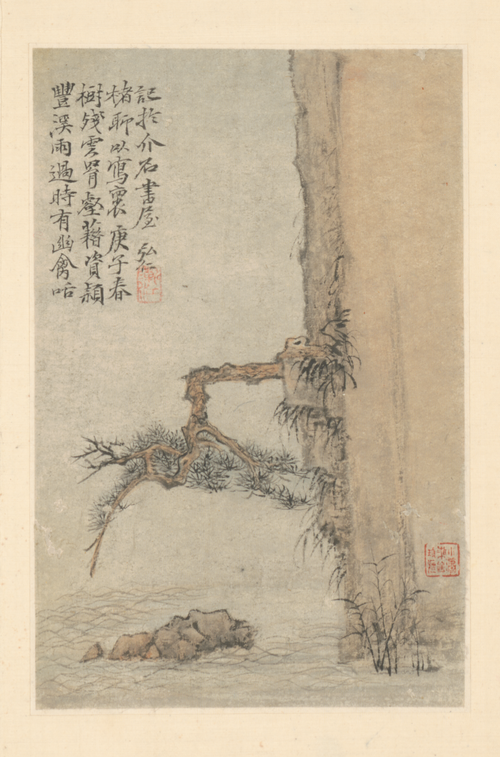 豐溪雨過時有幽禽咕
樹殘雲冐壑藉資穎
楮聊以寫褱庚子春
記於介石書屋 弘仁